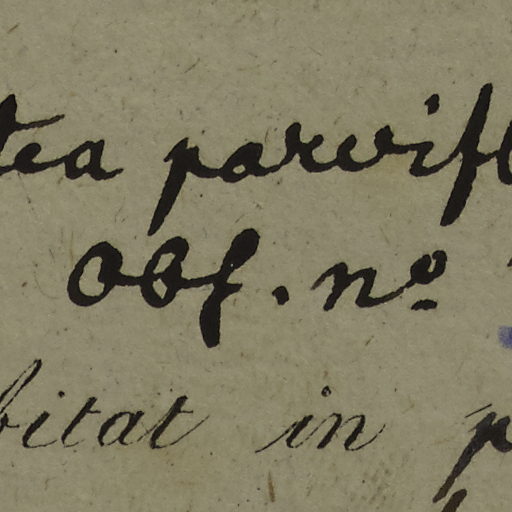 tea parvifl
Obs. nº
bitat in p